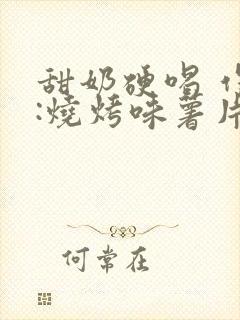 甜奶硬唱
:燒烤味薯片
何常在